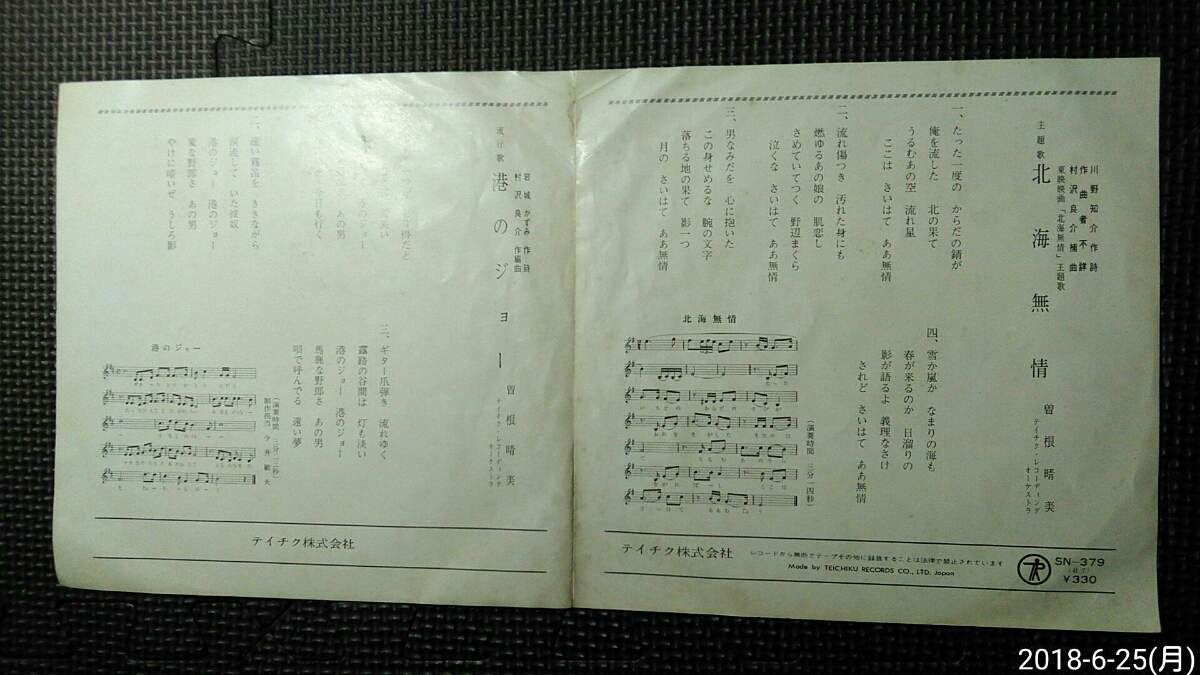 川野知介作詩
作曲者不詳
村沢良介補曲
東映映画「北海無情」主題歌
主題歌
北海無情
曽根晴美
テイチク・レコーディング
オーケストラ
一、たった一度の からだの錆が
俺を流した 北の果て
うるむあの空 流れ星
ここは さいはて ああ無情
二、流れ傷つき 汚れた身にも
燃ゆるあの娘の 肌恋し
さめていてつく 野辺まくら
泣くな さいはて ああ無情
三、男なみだを 心に抱いた
この身せめるな 腕の文字
落ちる地の果て 影一つ
月の さいはて ああ無情
四、雪か嵐か なまりの海も
春が来るのか 日溜りの
影が語るよ 義理なさけ
されど さいはて ああ無情
北海無情
(演奏時間 三分一四秒)
テイチク株式会社
レコードから無断でテープその他に録音することは法律で禁止されています
Made by TEICHIKU RECORDS CO., LTD. Japan
SN-379
¥330
岩城かずみ作詩
村沢良介作編曲
流行歌
港のジョー
曽根晴美
テイチク・レコーディング
オーケストラ
今日も行く
あの男
二、遠い霧笛を ききながら
涙流して いた彼奴
港のジョー 港のジョー
変な野郎さ あの男
やけに暗いぜ うしろ影
三、ギター爪弾き 流れゆく
露路の谷間は 灯も淡い
港のジョー 港のジョー
馬鹿な野郎さ あの男
唄で呼んでる 遠い夢
港のジョー
(演奏時間 三分三秒)
制作担当 今井敏夫
テイチク株式会社
2018-6-25(月)